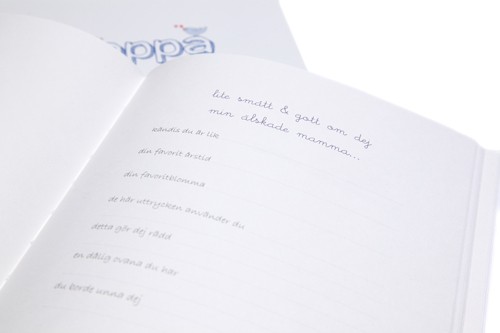 oppa
lite smått & gott om dej
min älskade mamma...
kändis du är lik
din favorit årstid
din favoritblomma
de här uttrycken använder du
detta gör dej rädd
en dålig ovana du har
du borde unna dej